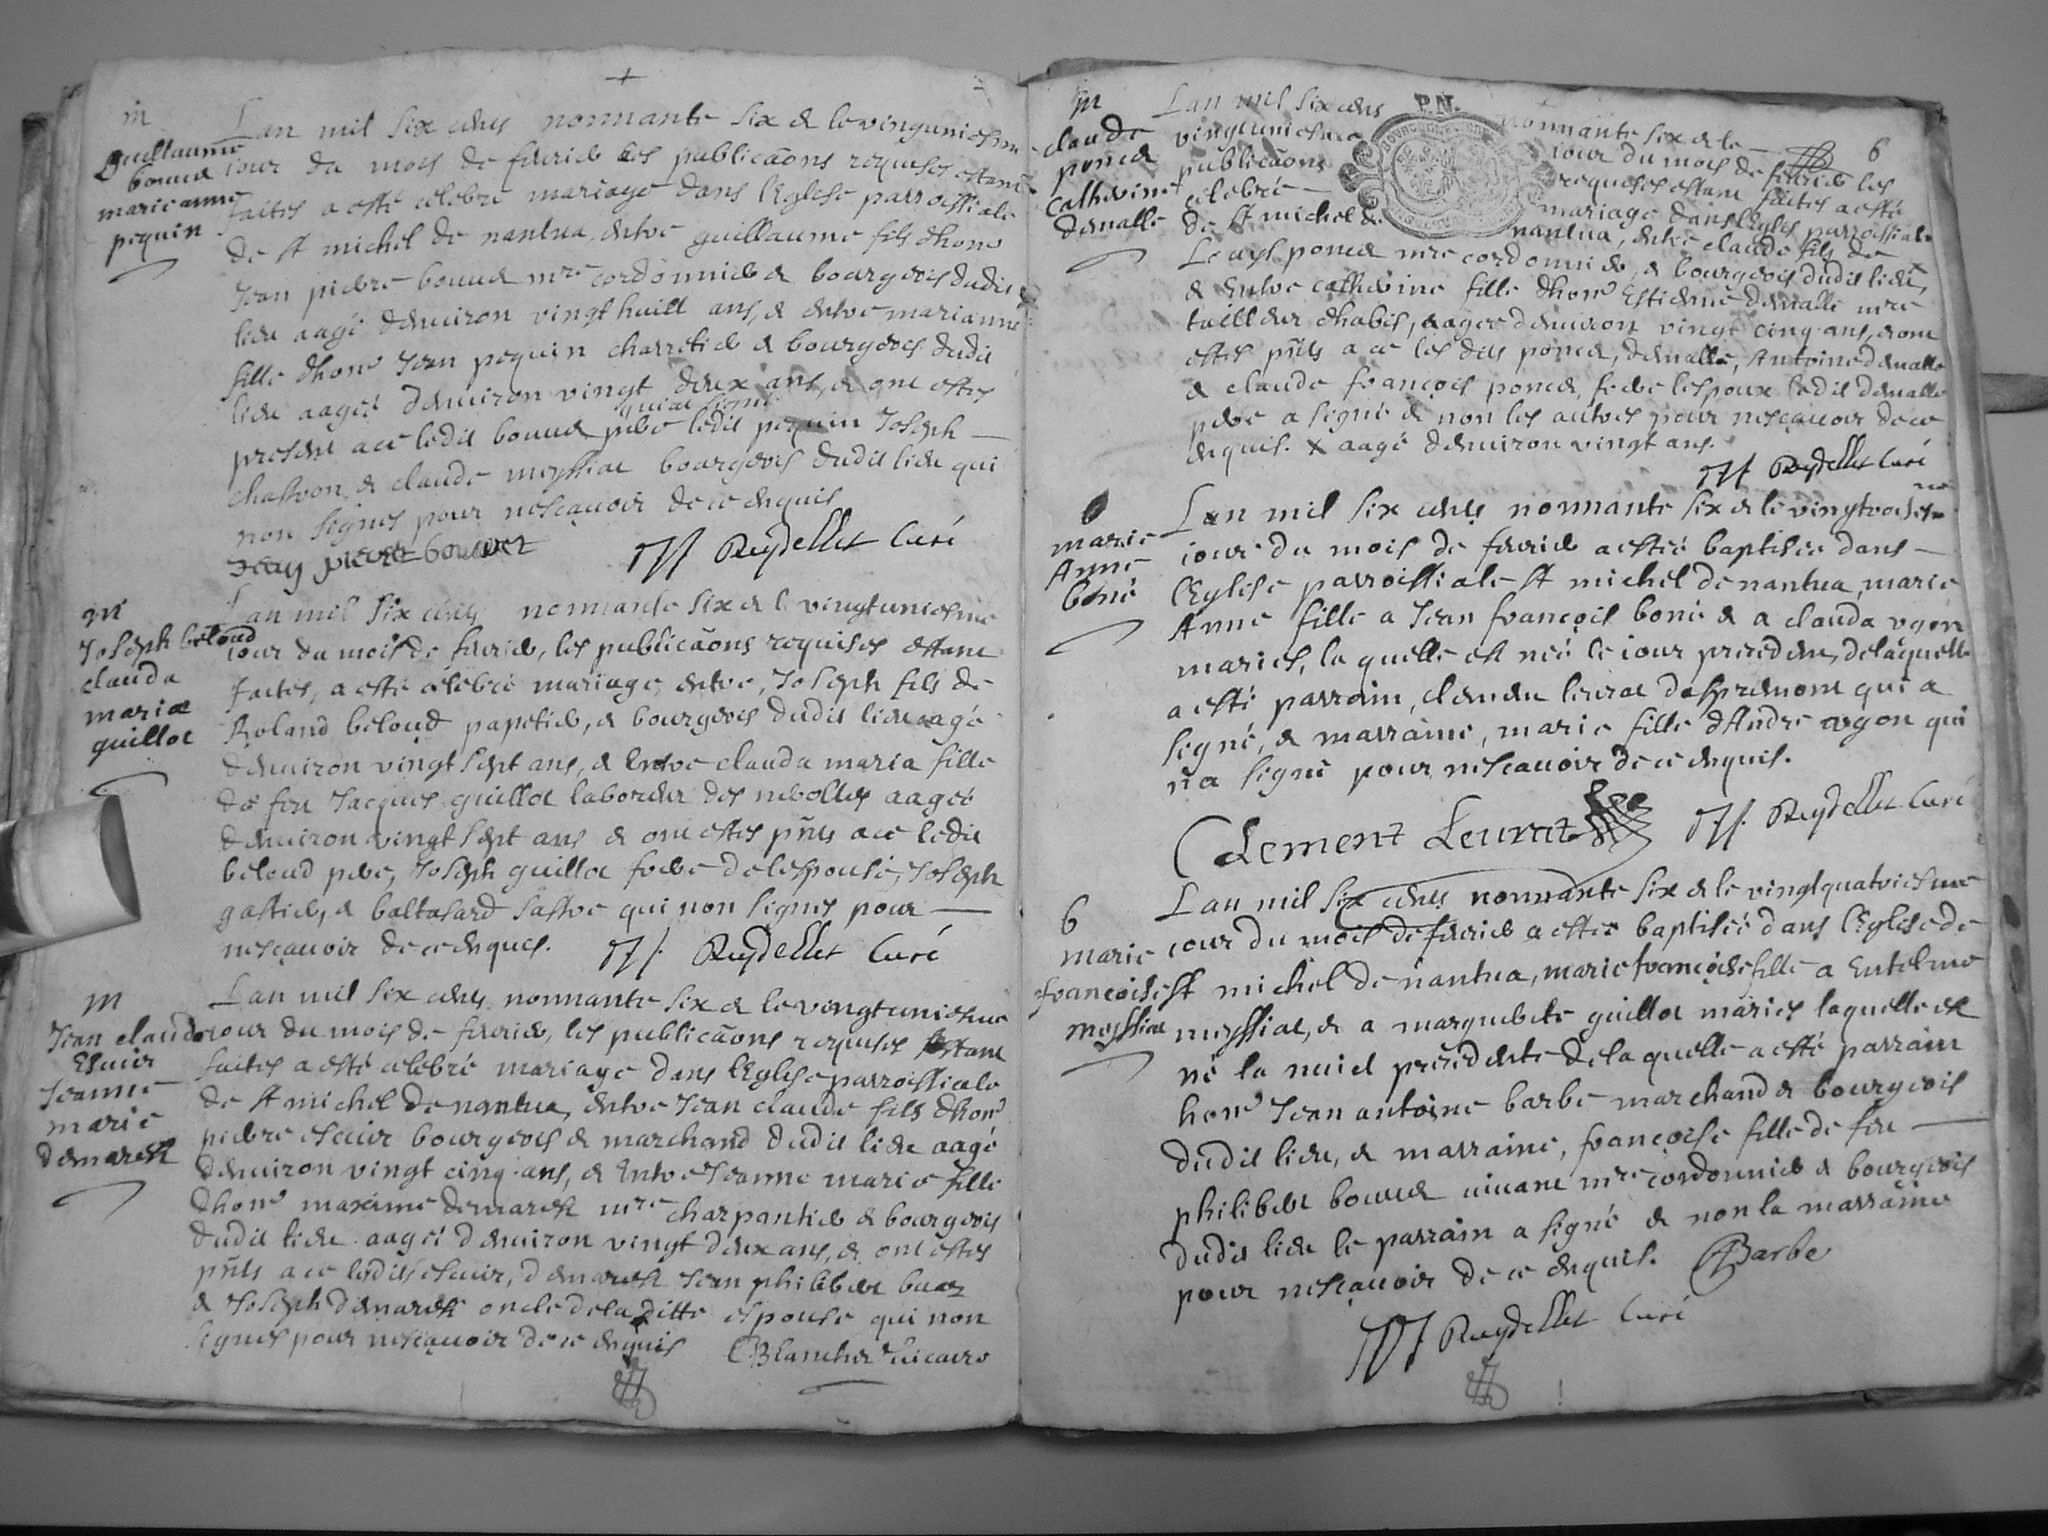 m
Guillaume
bouuet
marie anne
pequin
Lan mil six cents nonnante six & le vingtuniesme
iour du mois de feurier les publicãons requises estant
faites a esté celebré mariage dans leglise parroissiale
de st michel de nantua, entre guillaume fils dhonn
Jean pierre bouuet mre cordonnier & bourgeois dudit
lieu aagé denuiron vingt huict ans, & entre marianne
fille dhonn Jean pequin charretier & bourgeois dudit
lieu aageé denuiron vingt deux ans, & ont estes
qui a signé
present a ce ledit bouuet pere ledit pequin Joseph
& claude meyssiat bourgeois dudit lieu qui
non signes pour nescauoir de ce enquis
Jean pierre bouuet Reydellet Curé
m
Joseph beloud
clauda
maria
guillot
Lan mil six cents nonnante six & le vingtuniesme
iour du mois de feurier, les publicãons requises estant
faites, a esté celebré mariage, entre, Joseph fils de
Roland beloud papetier, & bourgeois dudit lieu aagé
denuiron vingt sept ans, & entre clauda maria fille
de feu Jacques guillot laboreur des neolles aageé
denuiron vingt sept ans & ont estes pñts a ce ledit
beloud pere, Joseph guillot frere de lespouse, Joseph
gastier, & baltasard sastre qui non signes pour
nescauoir de ce enques. Reydellet Curé
m
Jean claude
Escuir
Jeanne
marie
demarest
Lan mil six cents nonnante six & le vingtuniesme
iour du mois de feurier, les publicãons requises estant
faites a esté celebré mariage dans leglise parroissiale
de st michel de nantua, entre Jean claude fils dhonn
pierre escuir bourgeois & marchand dudit lieu aagé
denuiron vingt cinq ans, & Entre Jeanne marie fille
dhonn maxime demarest mre charpantier & bourgeois
dudit lieu aageé denuiron vingt deux ans, & ont estes
pñts a ce lesdits escuir, demarest Jean philibert
& Joseph demarest oncle de la ditte espouse qui non
signes pour nescauoir de ce enquis C Blanchet vicaire
6
m
claude
poncet
Catherine
deualle
Lan mil six cents nonnante six & le
vingtuniesme iour du mois de feurier les
publicãons requises estant faites a esté
celebré mariage dans leglise parroissiale
de st michel de nantua, entre claude fils de
poncet mre cordonnier, & bourgeois dudit lieu, x
& Entre catherine fille dhonn Estienne deualle mre
tailleur dhabis, aageé denuiron vingt cinq ans, & ont
estes pñts a ce les dits poncet, deualle, Antoine deualle
& claude françois poncet, frere lespoux ledit deualle
pere a signé & non les autres pour nescauoir de ce
enquis. x aagé denuiron vingt ans.
Reydellet Curé
6
marie
Anne
boné
Lan mil six cents nonnante six & le vingtroisiesme
iour du mois de feurier a esteé baptiseé dans
leglise parroissiale st michel de nantua, marie
Anne fille a Jean françois boné & a clauda ygon
mariés, la quelle est neé le iour precedent, de laquelle
a esté parrain, clement leurat qui a
signé, & marraine, marie fille dAndre ygon qui
na signé pour nescauoir de ce enquis.
Clement Leurat Reydellet Curé
6
marie
françoise
meyssiat
Lan mil six cents nonnante six & le vingtquatriesme
iour du mois de feurier a esteé baptiseé dans leglise de
st michel de nantua, marie françoise fille a Entelme
meyssiat, & a marguerite guillot mariés laquelle est
né la nuict precedente de la quelle a esté parrain
honn Jean antoine barbe marchand & bourgeois
dudit lieu, & marraine, françoise fille de feu
philibert bouuet viuant mre cordonnier & bourgeois
dudit lieu le parrain a signé & non la marraine
pour nescauoir de ce enquis. Barbe
Reydellet Curé